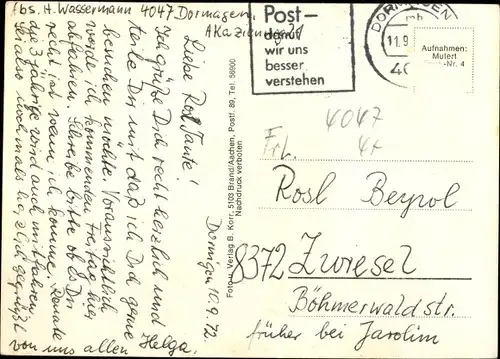 Abs. H. Wassermann 4047 Dormagen,
Akazienweg
Liebe Rosl Tante!
Ich grüße Dich recht herzlich und
teile Dir mit daß ich Dich gerne
besuchen möchte. Voraussichtlich
werde ich kommenden Freitag hier
abfahren. Schreibe bitte ob es Dir
recht ist wenn ich komme. Renate
die 3 jährige wird auch mitfahren.
Sei also nochmals herzlich gegrüßt
von uns allen Helga.
Dormagen 10.9.72.
Foto u. Verlag B. Korr, 5103 Brand/Aachen, Postf. 89, Tel. 56900
Nachdruck verboten
Post–
damit
wir uns
besser
verstehen
DORMAGEN
mb
11.9.
40
Aufnahmen:
Mutert
-Nr. 4
4047
Frl.
Rosl Beyrol
8372 Zwiesel
Böhmerwaldstr.
früher bei Jarolim